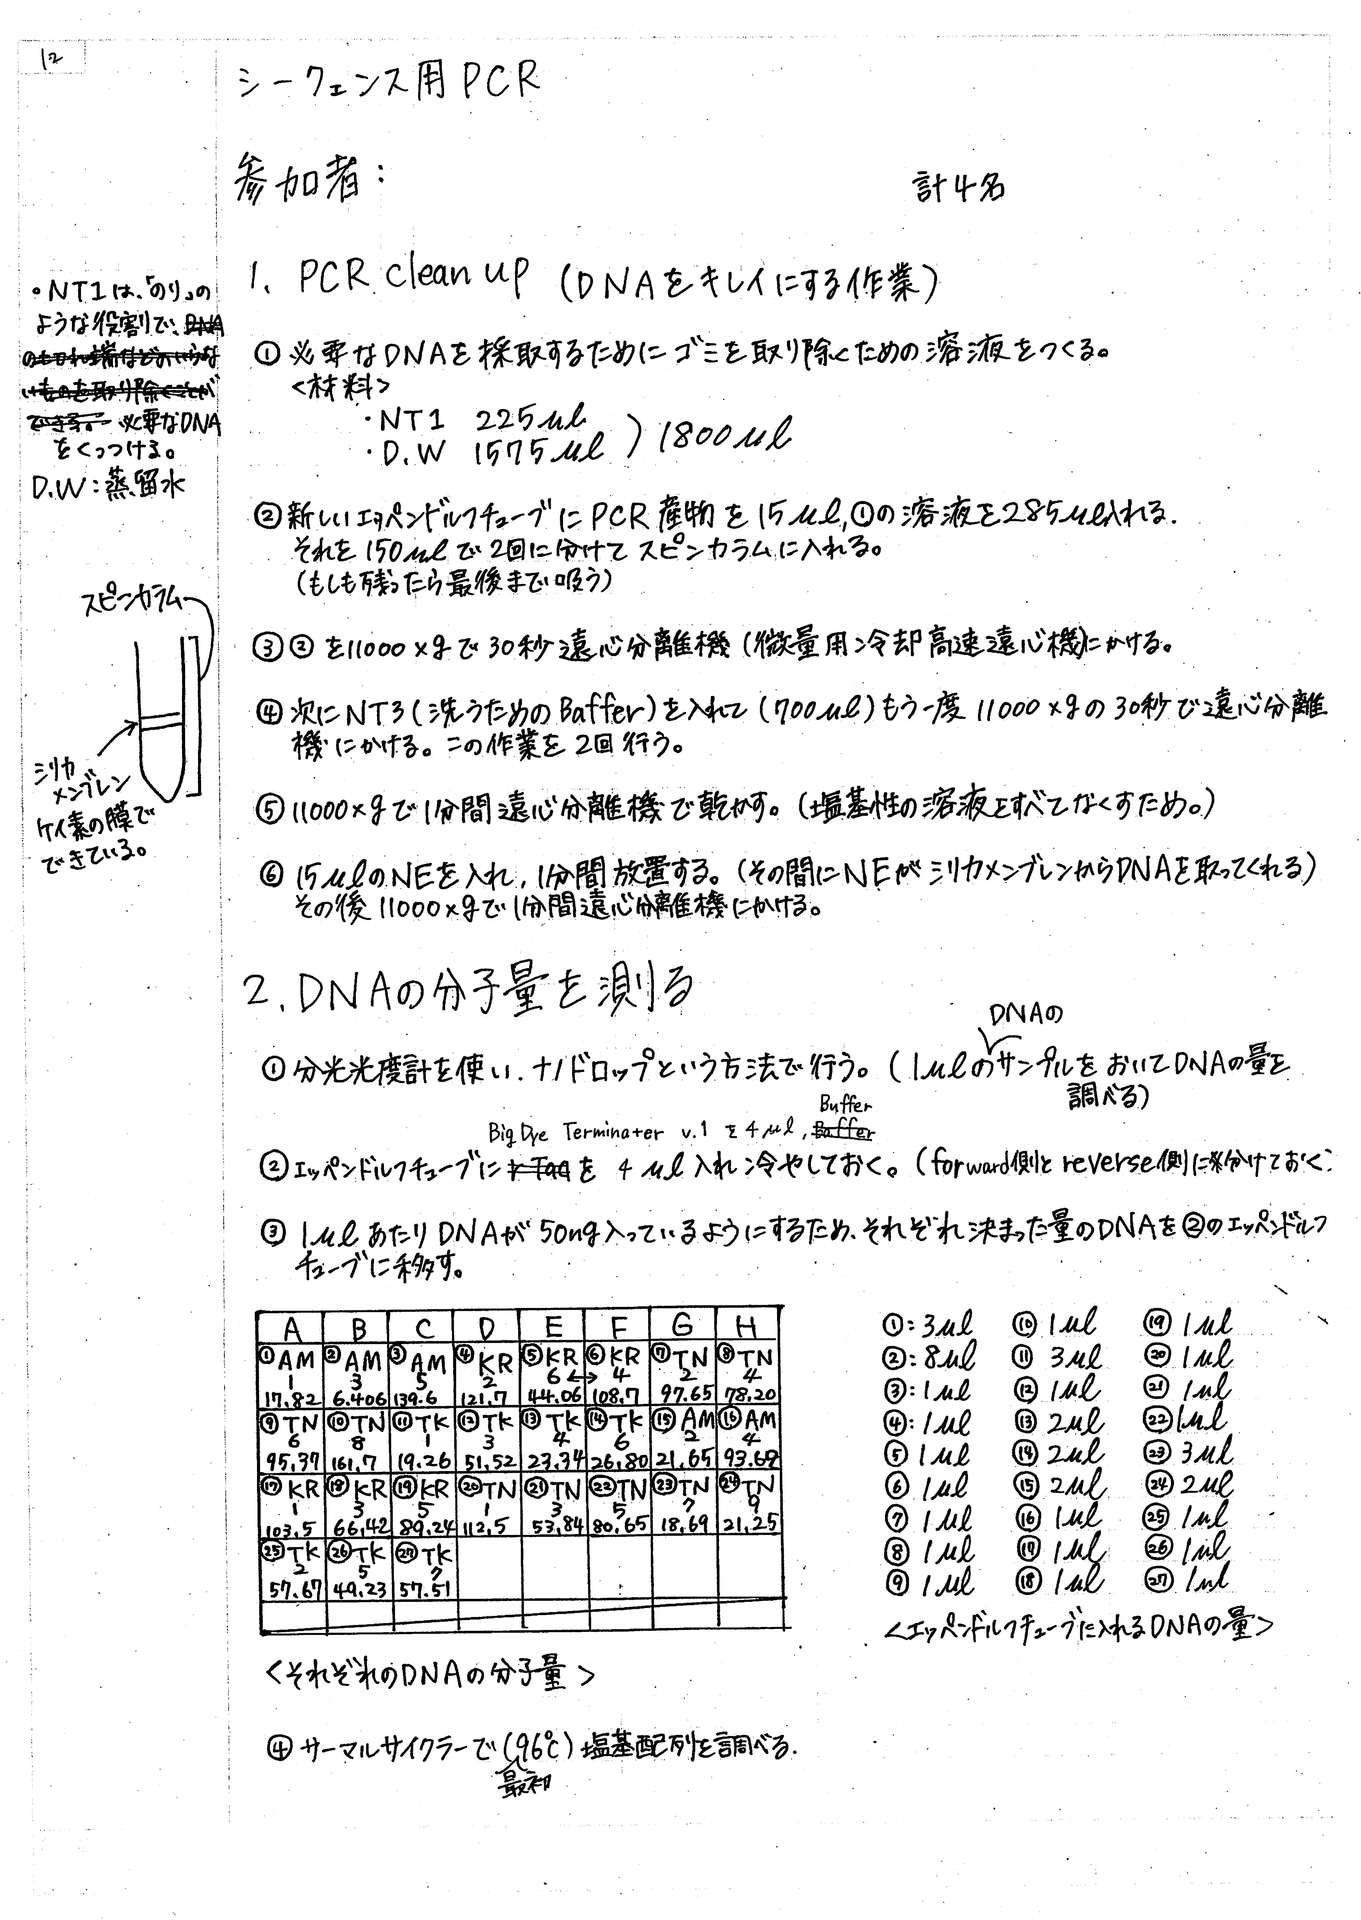 12
シークェンス用PCR
参加者: 計4名
1. PCR clean up (DNAをキレイにする作業)
・NT1は、「のり」の
ような役割で、DNA
のきれ端などのいらな
いものを取り除くことが
できる。必要なDNA
をくっつける。
D.W:蒸留水
① 必要なDNAを採取するためにゴミを取り除くための溶液をつくる。
<材料>
・NT1 225μl
・D.W 1575μl ) 1800μl
② 新しいエッペンドルフチューブにPCR産物を15μl,①の溶液を285μl入れる.
それを150μlで2回に分けてスピンカラムに入れる。
(もしも残ったら最後まで吸う)
スピンカラム
シリカ
メンブレン
ケイ素の膜で
できている。
③ ②を11000×gで30秒遠心分離機(微量用冷却高速遠心機)にかける。
④ 次にNT3(洗うためのBaffer)を入れて(700μl)もう一度11000×gの30秒で遠心分離
機にかける。この作業を2回行う。
⑤ 11000×gで1分間遠心分離機で乾かす。(塩基性の溶液をすべてなくすため。)
⑥ 15μlのNEを入れ,1分間放置する。(その間にNEがシリカメンブレンからDNAを取ってくれる)
その後11000×gで1分間遠心分離機にかける。
2. DNAの分子量を測る
DNAの
① 分光光度計を使い.ナノドロップという方法で行う。(1μlのサンプルをおいてDNAの量を
調べる)
Buffer
Big Dye Terminater v.1 を4μl, Baffer
② エッペンドルフチューブに r Taq を 4μl入れ冷やしておく。(forward側とreverse側に分けておく
③ 1μlあたりDNAが50ng入っているようにするため、それぞれ決まった量のDNAを②のエッペンドルフ
チューブに移す。
A B C D E F G H
①AM ②AM ③AM ④KR ⑤KR ⑥KR ⑦TN ⑧TN
1 3 5 2 6 ↔ 4 2 4
17.82 6.406 139.6 121.7 44.06 108.7 97.65 78.20
⑨TN ⑩TN ⑪TK ⑫TK ⑬TK ⑭TK ⑮AM ⑯AM
6 8 1 3 4 6 2 4
95.37 161.7 19.26 51.52 23.34 26.80 21.65 93.69
⑰KR ⑱KR ⑲KR ⑳TN ㉑TN ㉒TN ㉓TN ㉔TN
1 3 5 1 3 5 7 9
103.5 66.42 89.24 112.5 53.84 80.65 18.69 21.25
㉕TK ㉖TK ㉗TK
2 5 7
57.67 49.23 57.51
<それぞれのDNAの分子量>
①:3μl ⑩1μl ⑲1μl
②:8μl ⑪3μl ⑳1μl
③:1μl ⑫1μl ㉑1μl
④:1μl ⑬2μl ㉒1μl
⑤1μl ⑭2μl ㉓3μl
⑥1μl ⑮2μl ㉔2μl
⑦1μl ⑯1μl ㉕1μl
⑧1μl ⑰1μl ㉖1μl
⑨1μl ⑱1μl ㉗1μl
<エッペンドルフチューブに入れるDNAの量>
④ サーマルサイクラーで(96℃)塩基配列を調べる.
最初